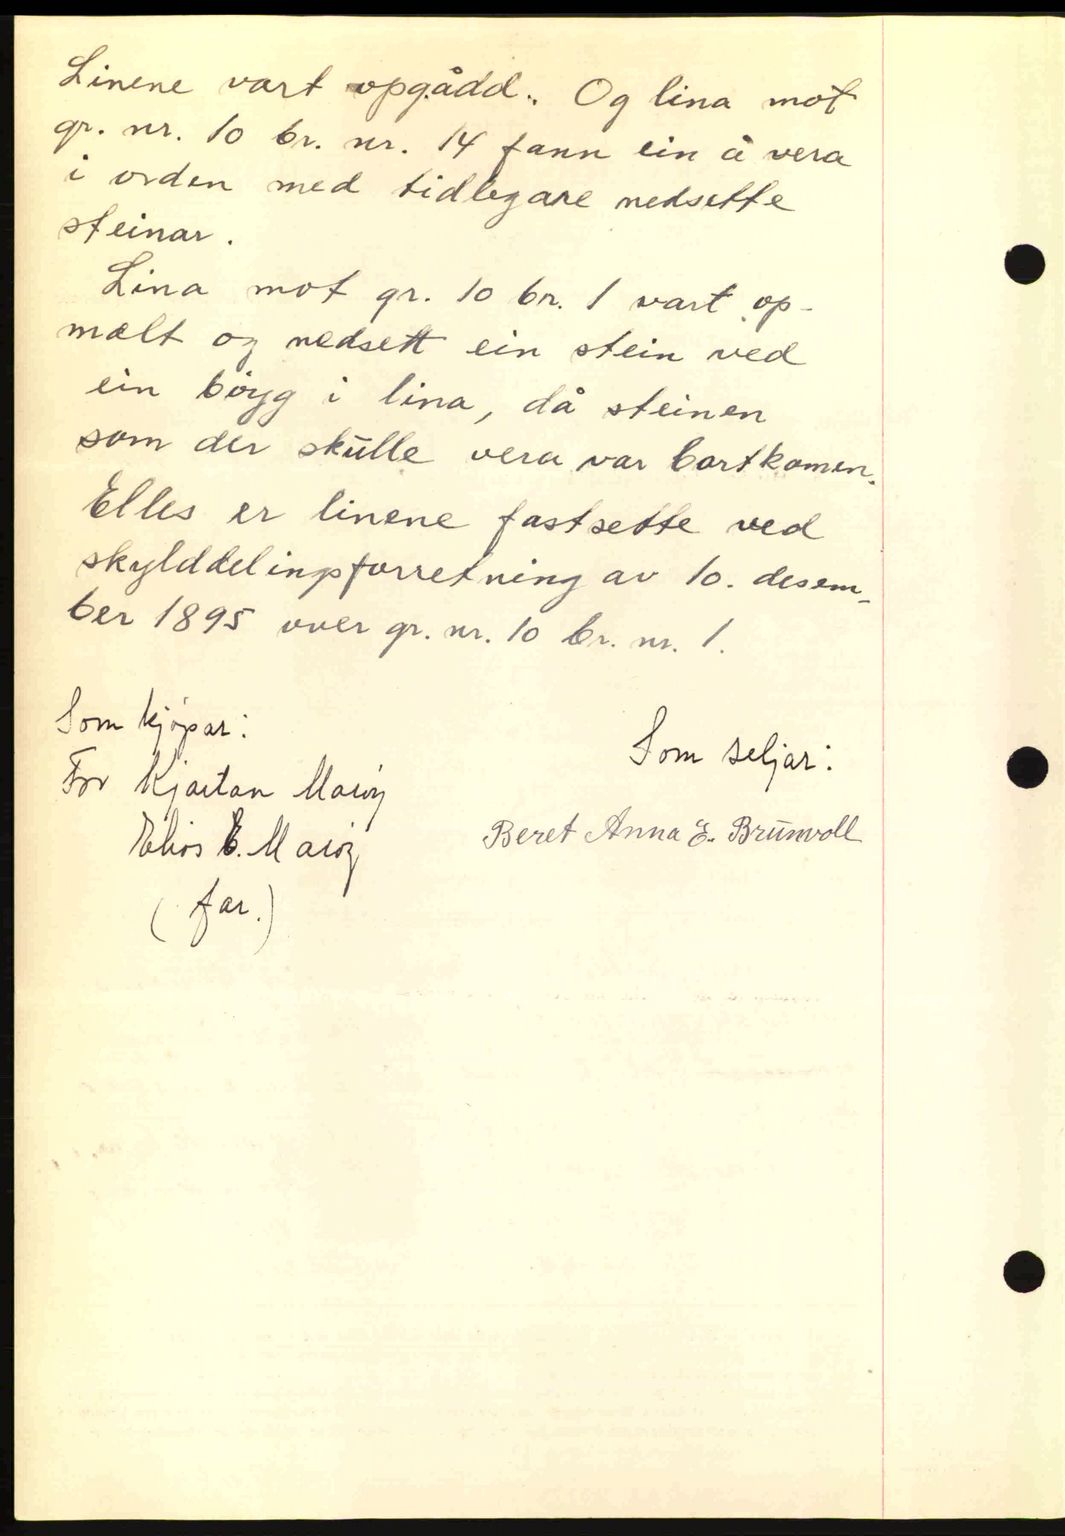 Linene vart opgådd. Og lina mot
gr. nr. 10 br. nr. 14 fann ein å vera
i orden med tidlegare nedsette
steinar.
Lina mot gr. 10 br. 1 vart op-
mælt og nedsett ein stein ved
ein bøyg i lina, då steinen
som der skulle vera var bortkomen.
Elles er linene fastsette ved
skylddelingsforretning av 10. desem-
ber 1895 over gr. nr. 10 br. nr. 1.
Som kjøpar:
Som seljar:
For Kjartan Marøy
Beret Anna E. Brunvoll
Elias E. Marøy
(far.)